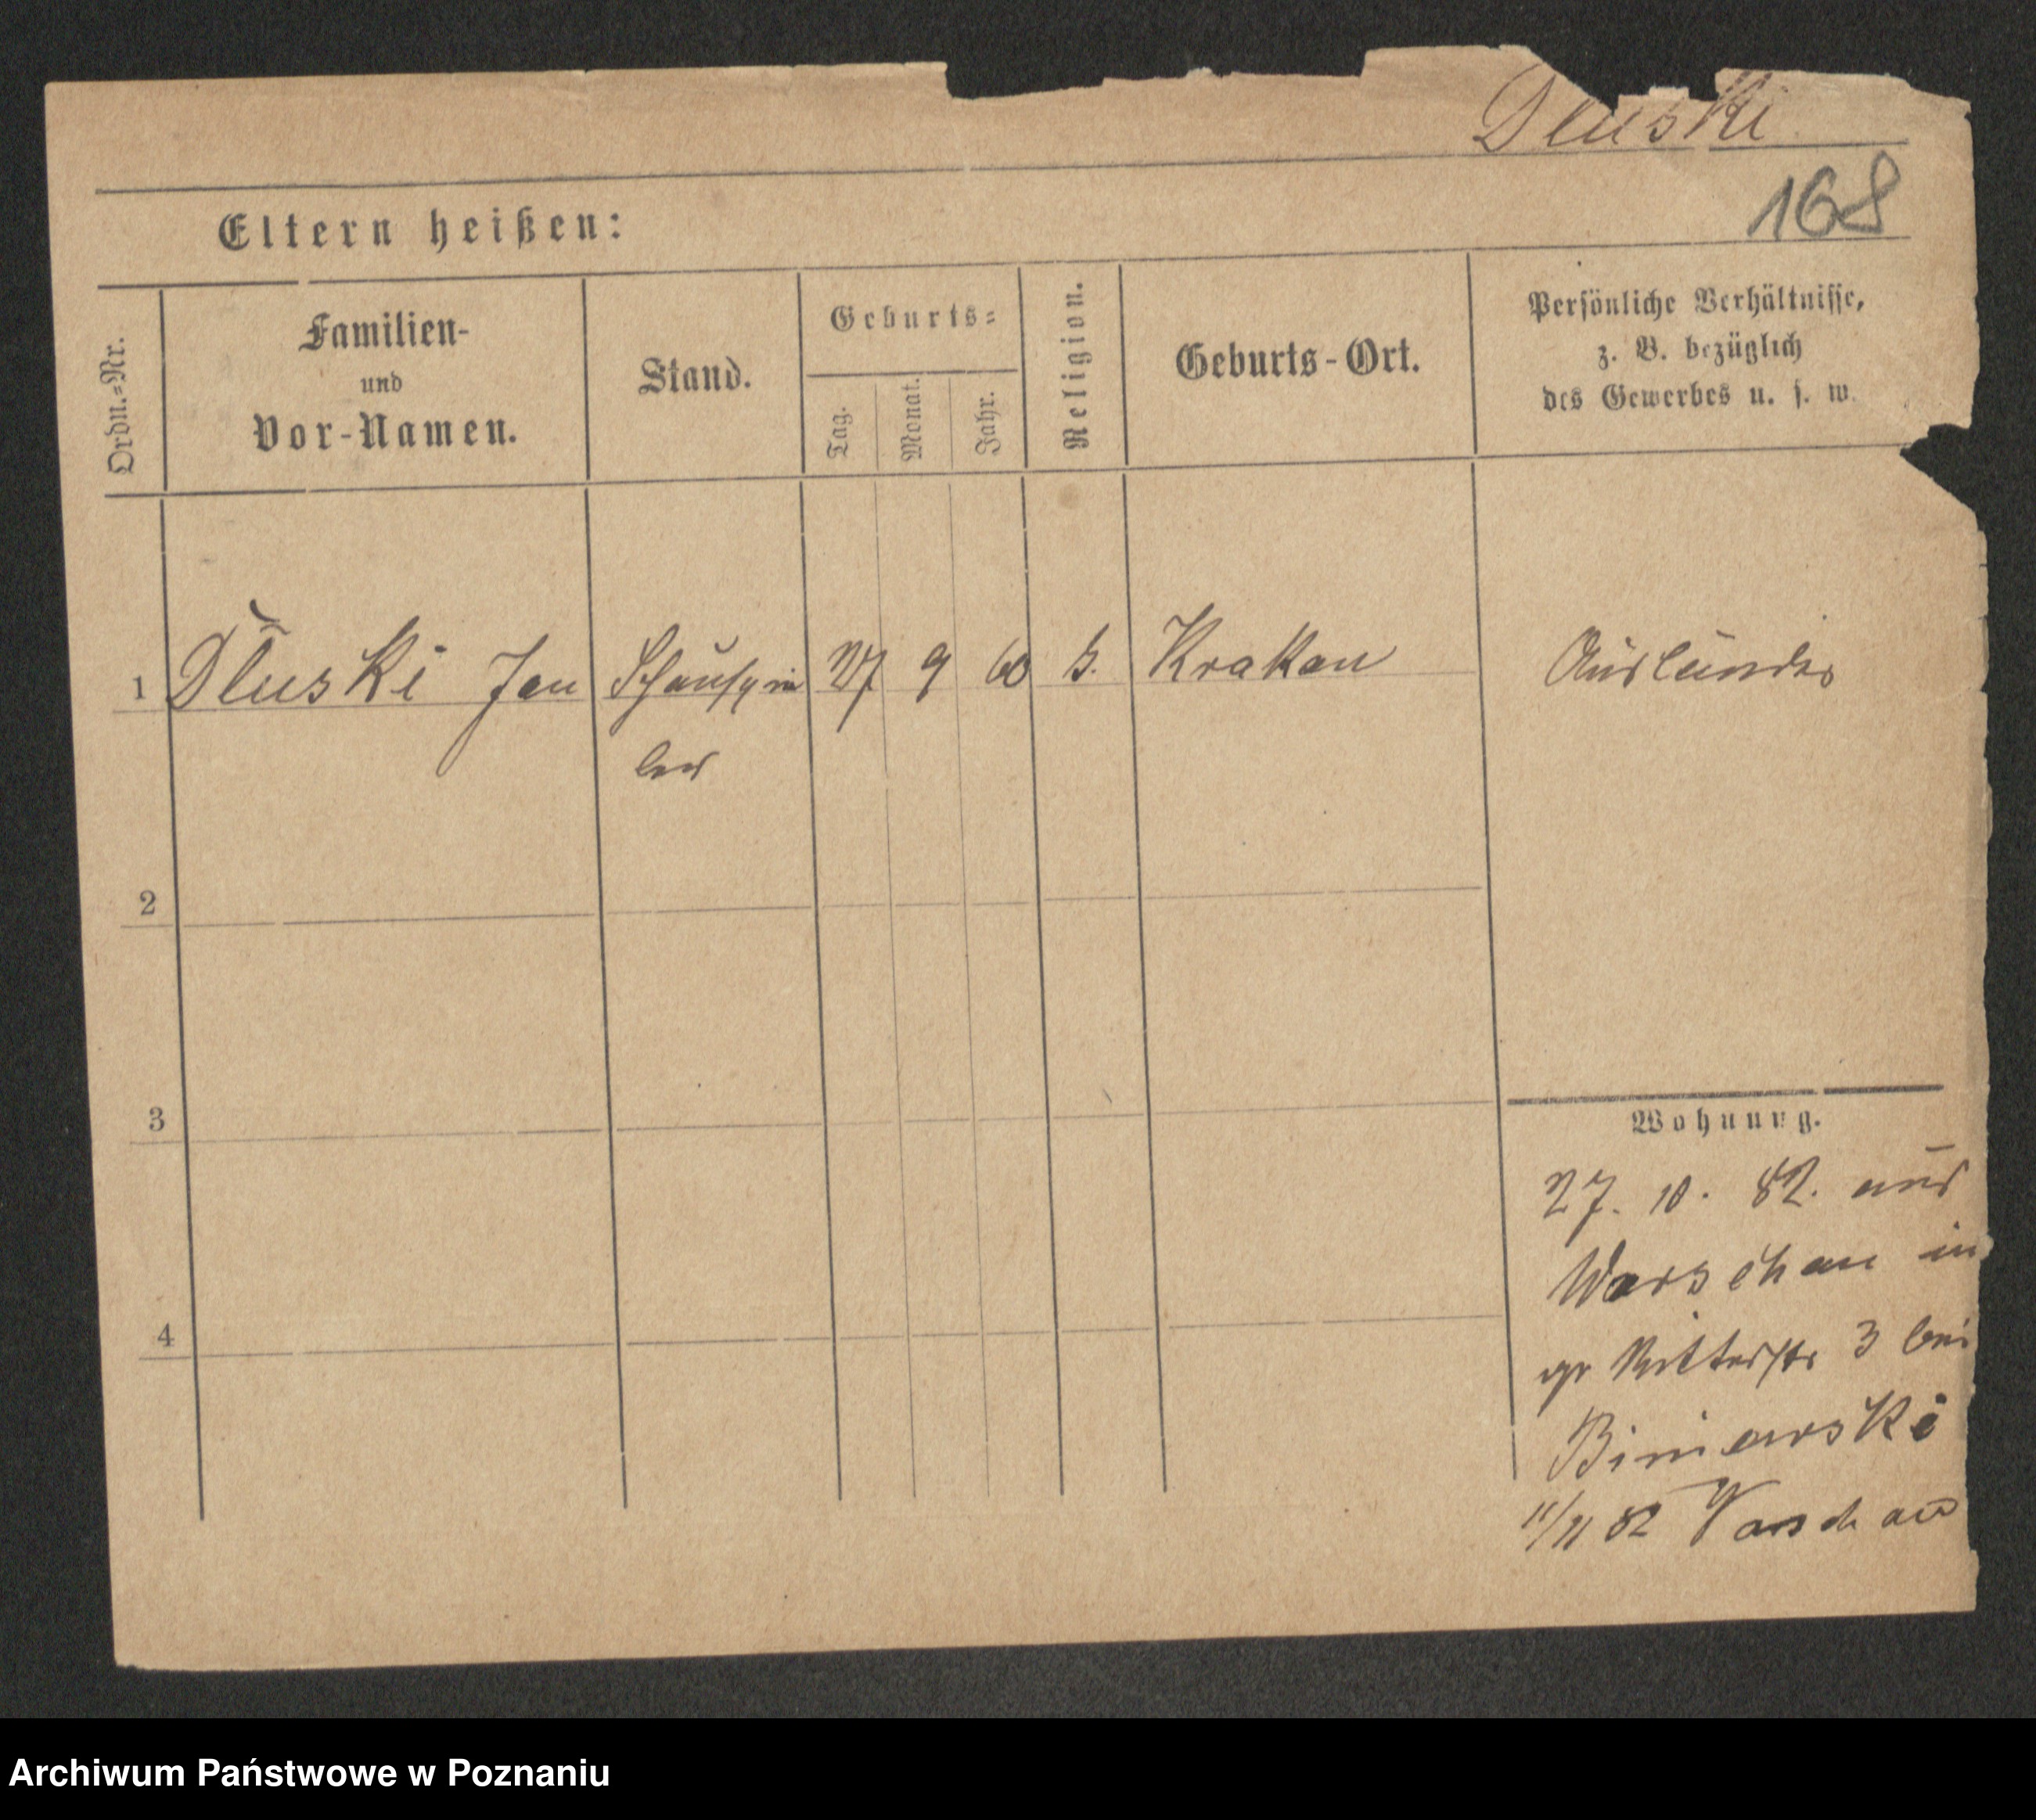 Dluski
168
Eltern heißen:
Ordn.=Nr.
Familien-
und
Vor-Namen.
Stand.
Geburts=
Tag.
Monat.
Jahr.
Religion.
Geburts-Ort.
Persönliche Verhältnisse,
z. B. bezüglich
des Gewerbes u. s. w.
1 Dłuski Jan Schauspie 27 9 60 k. Krakau Ausländer
ler
2
3
4
Wohnung.
27. 10. 82. aus
Warschau in
gr Ritterstr 3 bei
Biniewski
11/11 82 Varschau
Archiwum Państwowe w Poznaniu